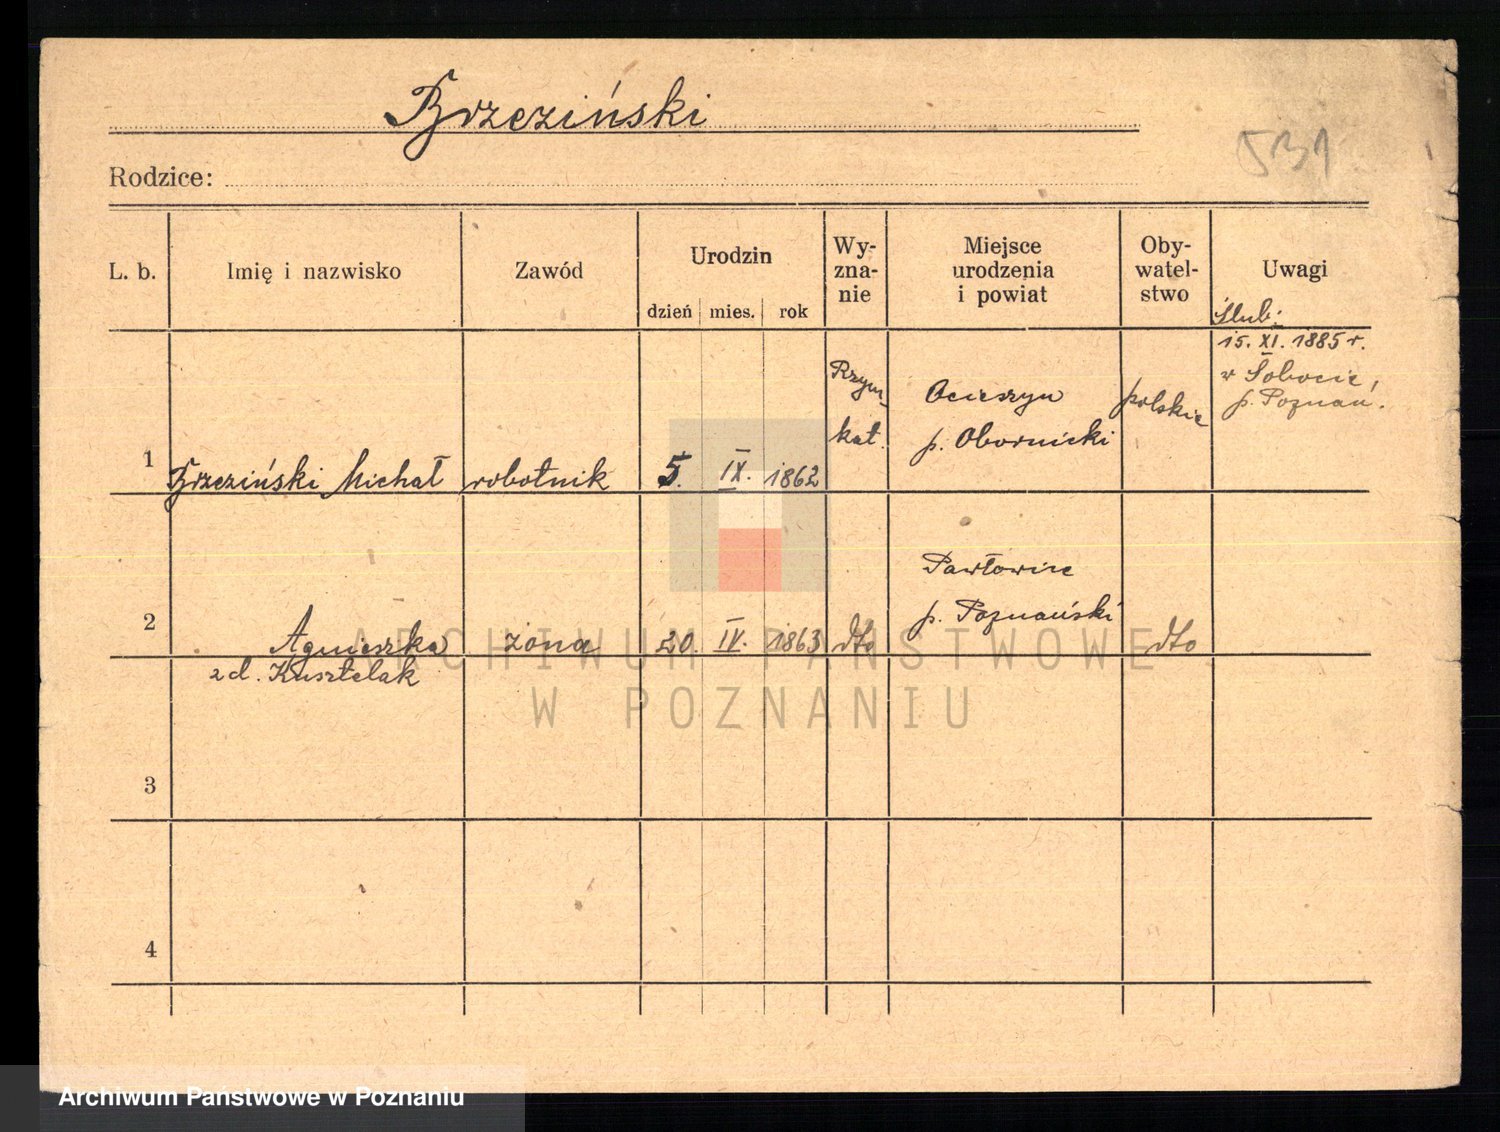 Brzeziński
531
Rodzice:
L. b.
Imię i nazwisko
Zawód
Urodzin
dzień
mies.
rok
Wy-
zna-
nie
Miejsce
urodzenia
i powiat
Oby-
watel-
stwo
Uwagi
Ślub:
15. XI. 1885 r.
w Sobocie,
p. Poznań.
1
Brzeziński Michał
robotnik
5. IX. 1862
Rzym.
kat.
Ocieszyn
p. Obornicki
polskie
2
Agnieszka
z d. Kusztelak
żona
20. IV. 1863
dto
Pawłowice
p. Poznański
dto
3
4
ARCHIWUM PAŃSTWOWE
W POZNANIU
Archiwum Państwowe w Poznaniu